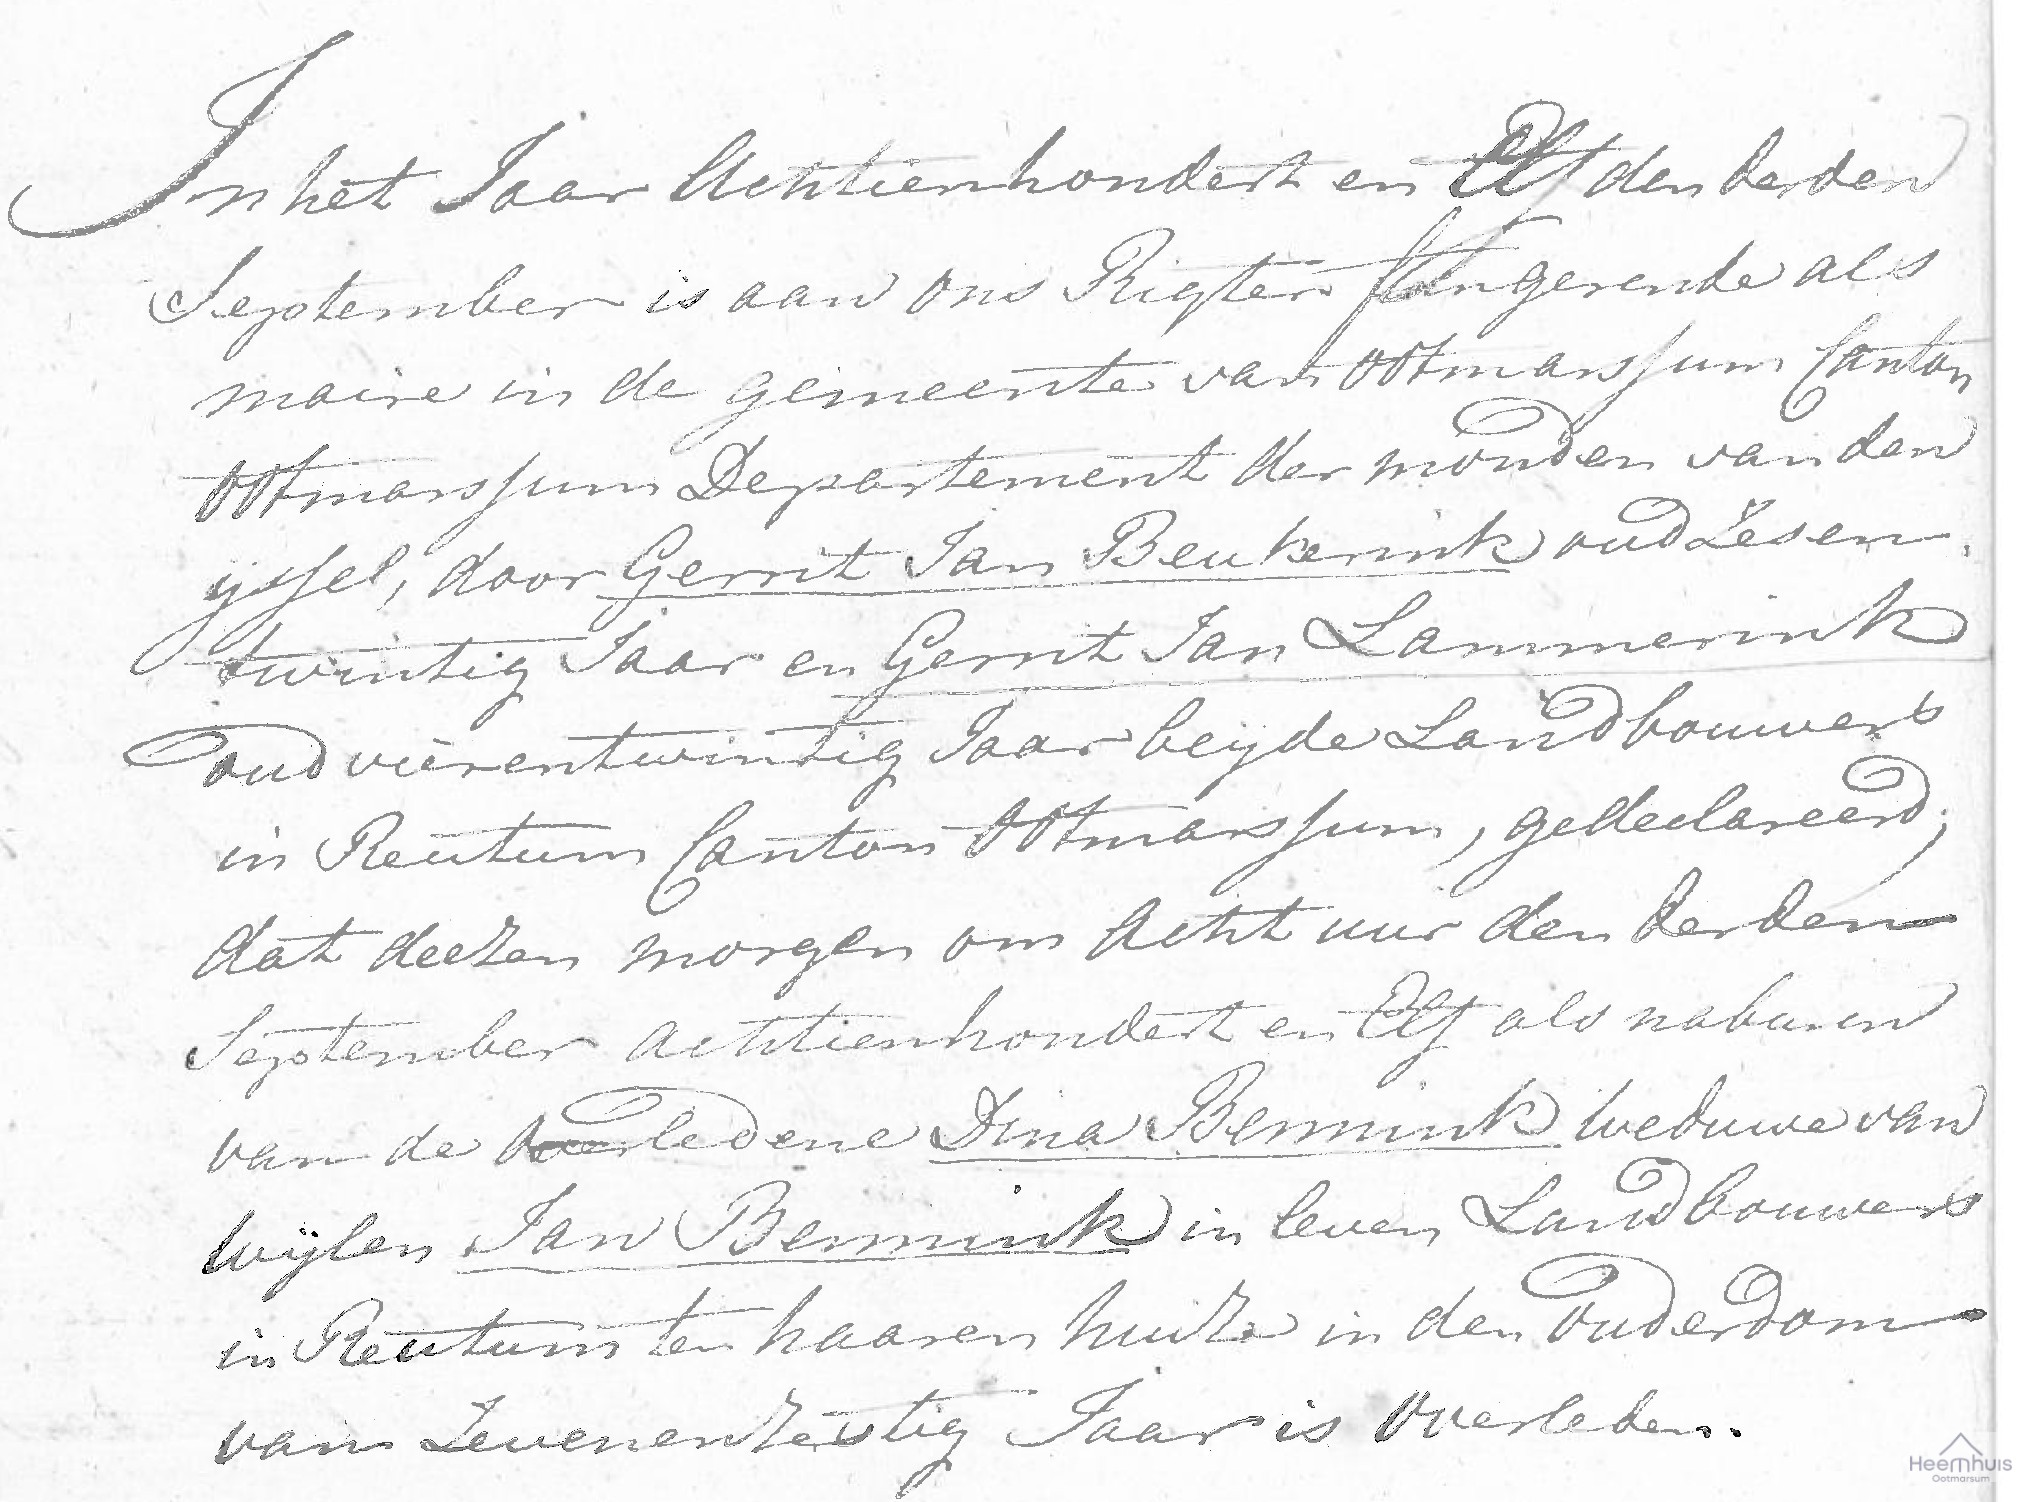 In het Jaar Achtienhondert en Elf den derden
September is aan ons Rigter fungerende als
maire in de gemeente van Ootmarssum Canton
Ootmarssum Departement der monden van den
ijssel, door Gerrit Jan Beukerink oud Zesen
twintig Jaar en Gerrit Jan Lammerink
oud vierentwintig Jaar beyde Landbouwers
in Reutum Canton Ootmarssum, gedeclareerd,
dat deezen morgen om Acht uur den derden
September Achtienhondert en Elf als naburen
van de overledene Dina Bennink Weduwe van
Wijlen Jan Bennink in leven Landbouwers
in Reutum ten haaren huize in den ouderdom
van Zevenenzestig Jaar is overleden.
Heemhuis
Ootmarsum